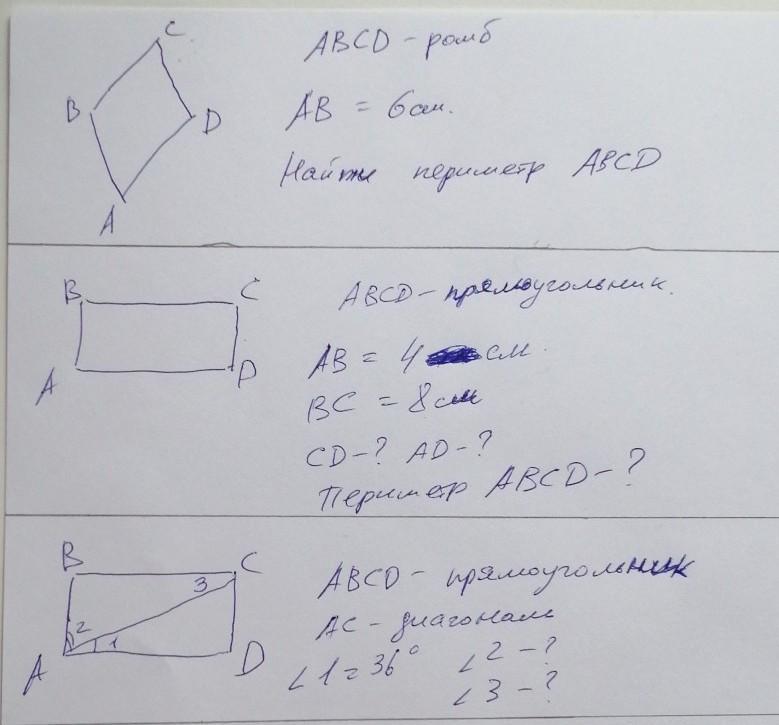 C
B
D
A
ABCD - ромб
AB = 6 см.
Найти периметр ABCD
B C
A D
ABCD - прямоугольник.
AB = 4 см.
BC = 8 см
CD - ? AD - ?
Периметр ABCD - ?
B C
3
2
1
A D
ABCD - прямоугольник
AC - диагональ
∠1 = 36° ∠2 - ?
∠3 - ?